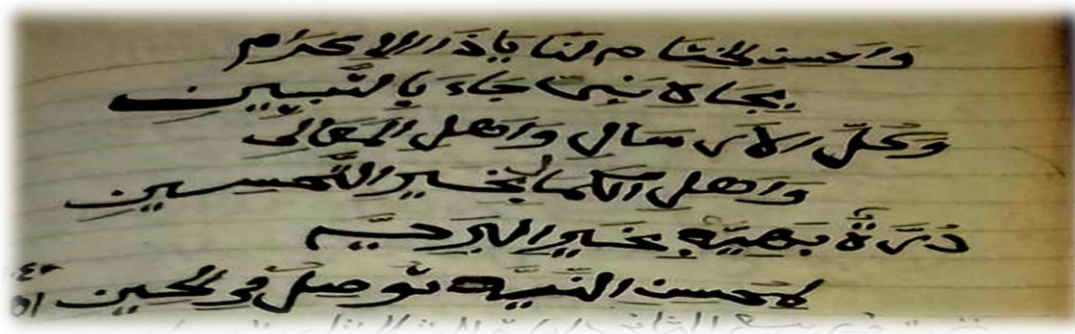 وَاحسن الختام لنَا يَاذَا الإكرَام
بجَاه نَبِى جَاءَ بِالتَّبيين
وَكلّ الأرسَال وَاهل المعَالى
وَاهل الكمال بخير التَّحسين
دُرَةٌ بَهيَّه بخير البَريَّه
لاحسن النِّيَّه توصل فى الحين